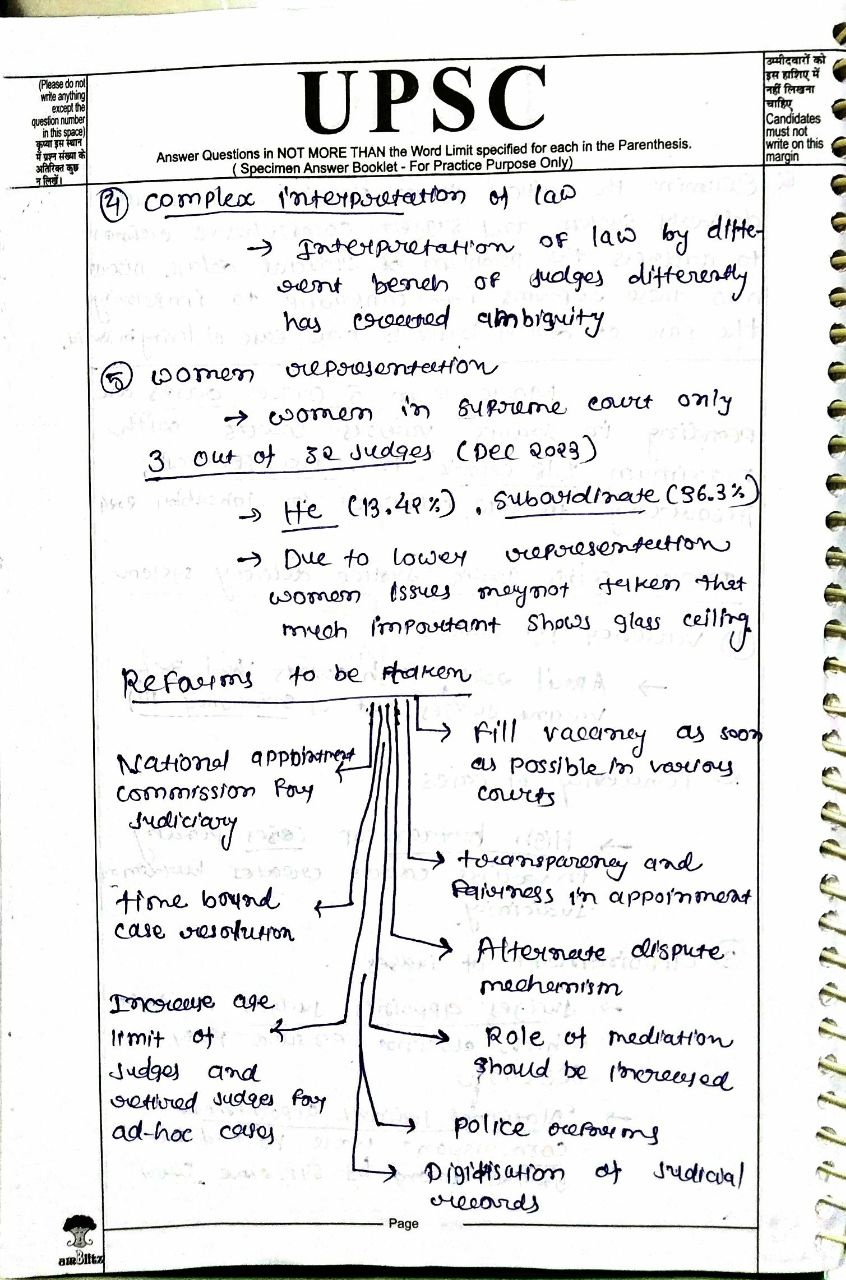 (Please do not
write anything
except the
question number
in this space)
कृपया इस स्थान
में प्रश्न संख्या के
अतिरिक्त कुछ
न लिखें।
UPSC
Answer Questions in NOT MORE THAN the Word Limit specified for each in the Parenthesis.
( Specimen Answer Booklet - For Practice Purpose Only)
उम्मीदवारों को
इस हाशिए में
नहीं लिखना
चाहिए
Candidates
must not
write on this
margin
④ Complex interpretation of law
→ Interpretation of law by diffe-
rent bench of judges differently
has created ambiguity
⑤ women representation
→ women in supreme court only
3 out of 32 judges (Dec 2023)
→ HC (13.42%). Subordinate (36.3%)
→ Due to lower representation
women issues maynot taken that
much important shows glass ceiling
Reforms to be taken
National appointment
commission for
judiciary
Fill vacancy as soon
as possible in various
courts
transparency and
fairness in appoinment
time bound
case resolution
Alternate dispute
mechanism
Increase age
limit of
judges and
retired judges for
ad-hoc cases
Role of mediation
should be increased
police reforms
Digitisation of judicial
records
Page
amBlitz